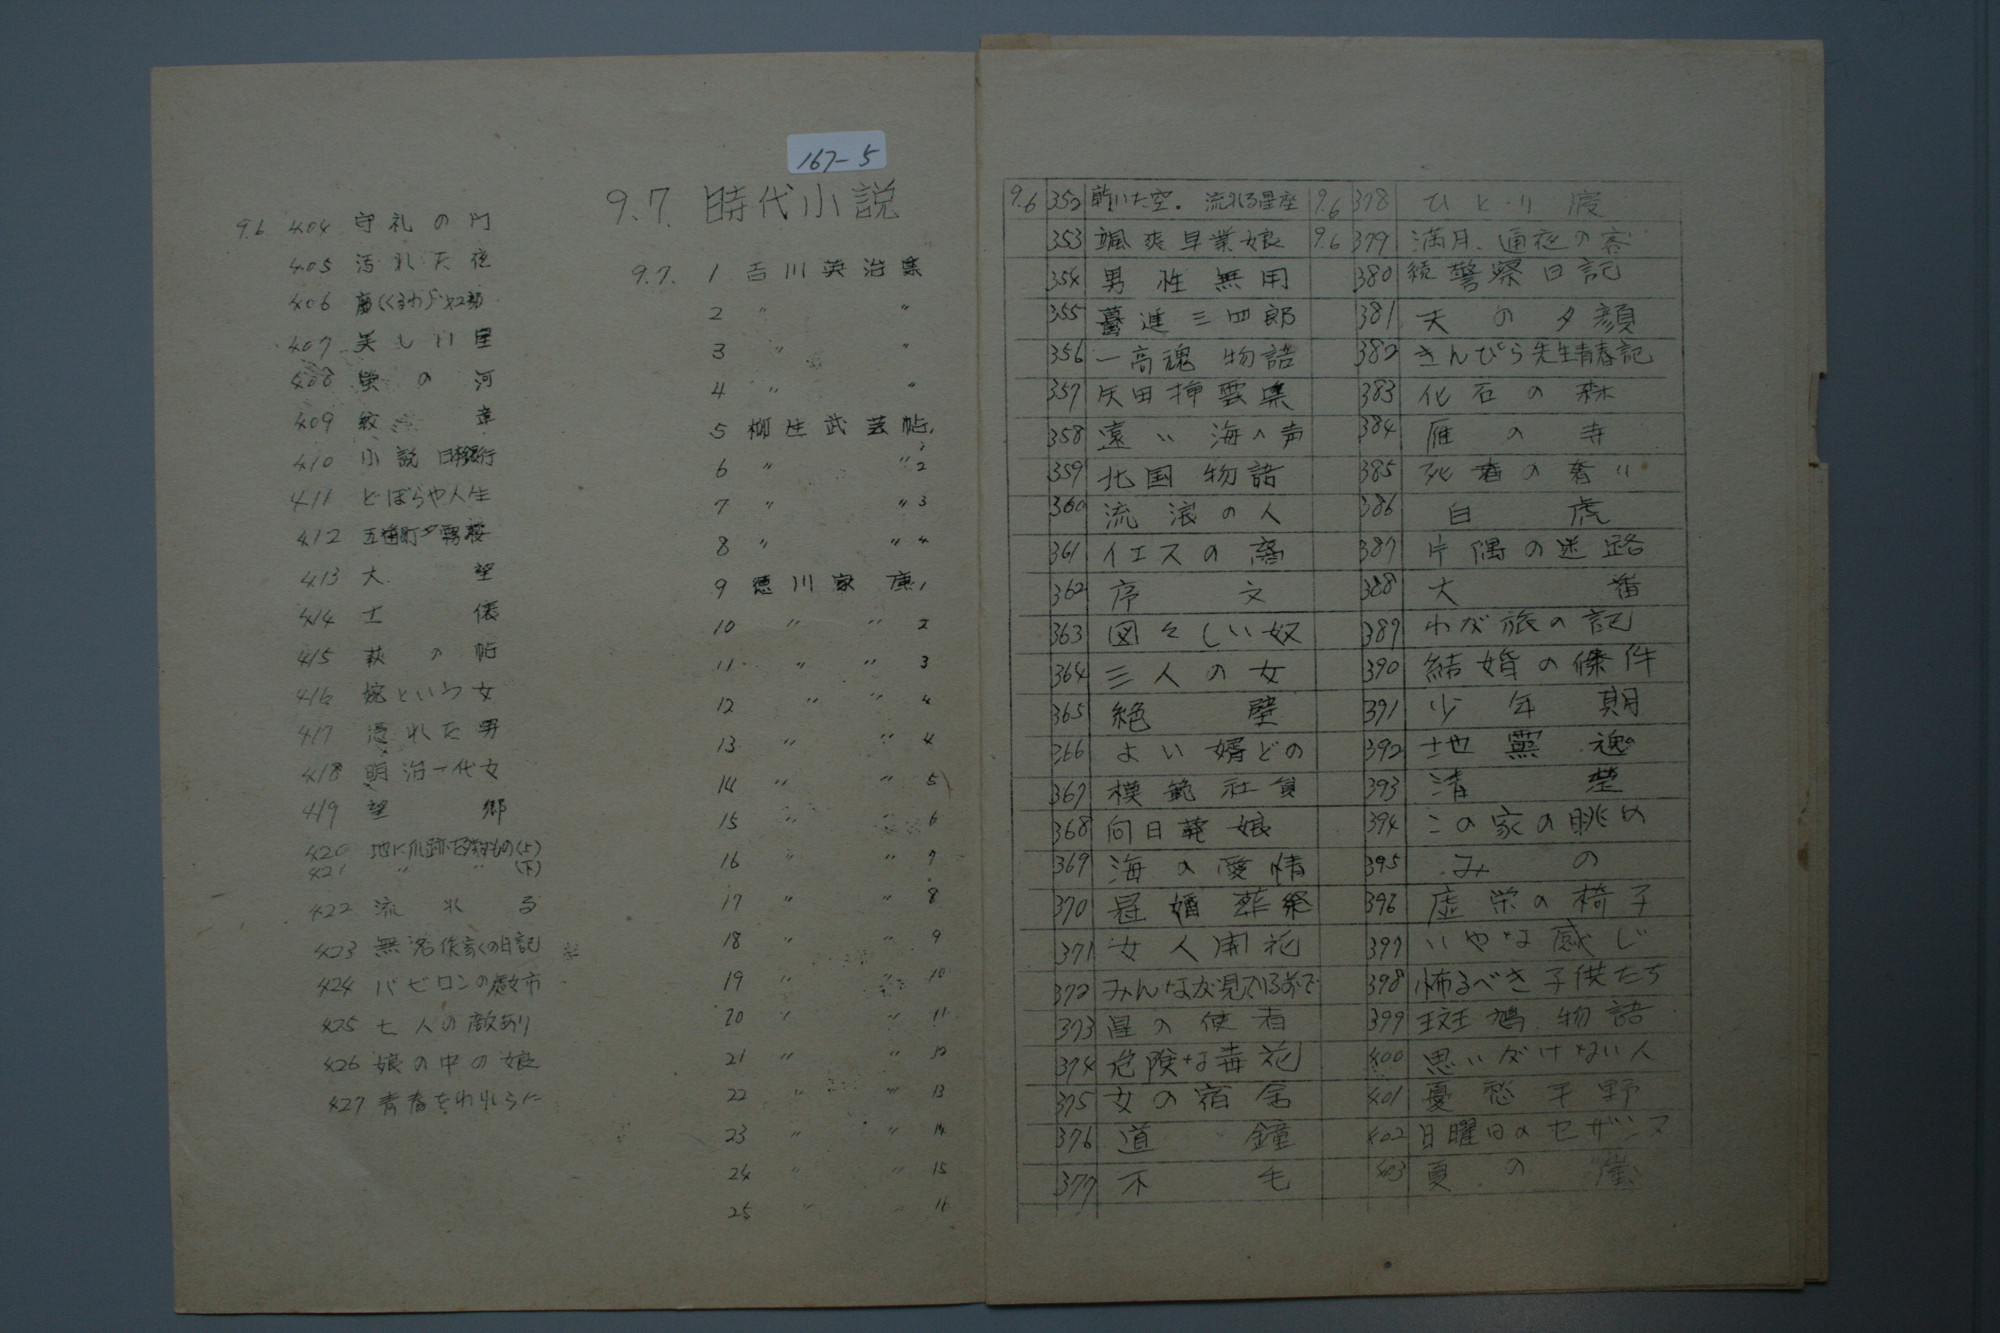 167-5
9.6 404 守礼の門
405 汚れた夜
406
407 美しい星
408 蛍の河
409 紋章
410 小説日本銀行
411 とぼらや人生
412 五番町夕霧楼
413 大望
414 土俵
415 萩の帖
416 婉という女
417 憑れた男
418 明治一代女
419 望郷
420 地に爪跡を残すもの(上)
421 〃 〃 (下)
422 流れる
423 無名作家の日記
424 バビロンの処女市
425 七人の敵あり
426 娘の中の娘
427 青春をわれらに
9.7. 時代小説
9.7. 1 吉川英治集
2 〃 〃
3 〃 〃
4 〃 〃
5 柳生武芸帖1
6 〃 〃2
7 〃 〃3
8 〃 〃4
9 徳川家康1
10 〃 〃 2
11 〃 〃 3
12 〃 〃 4
13 〃 〃 4
14 〃 〃 5
15 〃 〃 6
16 〃 〃 7
17 〃 〃 8
18 〃 〃 9
19 〃 〃 10
20 〃 〃 11
21 〃 〃 12
22 〃 〃 13
23 〃 〃 14
24 〃 〃 15
25 〃 〃 16
9.6 352 乾いた空.流れる星座
353 颯爽早業娘
354 男性無用
355 驀進三四郎
356 一高魂物語
357 矢田挿雲集
358 遠い海の声
359 北国物語
360 流浪の人
361 イエスの裔
362 序文
363 図々しい奴
364 三人の女
365 絶壁
366 よい婿どの
367 模範社員
368 向日葵娘
369 海の愛情
370 冠婚葬祭
371 女人開花
372 みんなが見ている前で
373 星の使者
374 危険な毒花
375 女の宿舎
376 道鐘
377 不毛
9.6 378 ひとり寝
9.6 379 満月.通夜の客
380 続警察日記
381 天の夕顔
382 きんぴら先生青春記
383 化石の森
384 雁の寺
385 死者の奢り
386 白虎
387 片隅の迷路
388 大番
389 わが旅の記
390 結婚の條件
391 少年期
392 土地霊魂
393 清楚
394 この家の眺め
395 みの
396 虚栄の椅子
397 いやな感じ
398 怖るべき子供たち
399 斑鳩物語
400 思いがけない人
401 憂愁平野
402 日曜日のセザンヌ
403 夏の崖